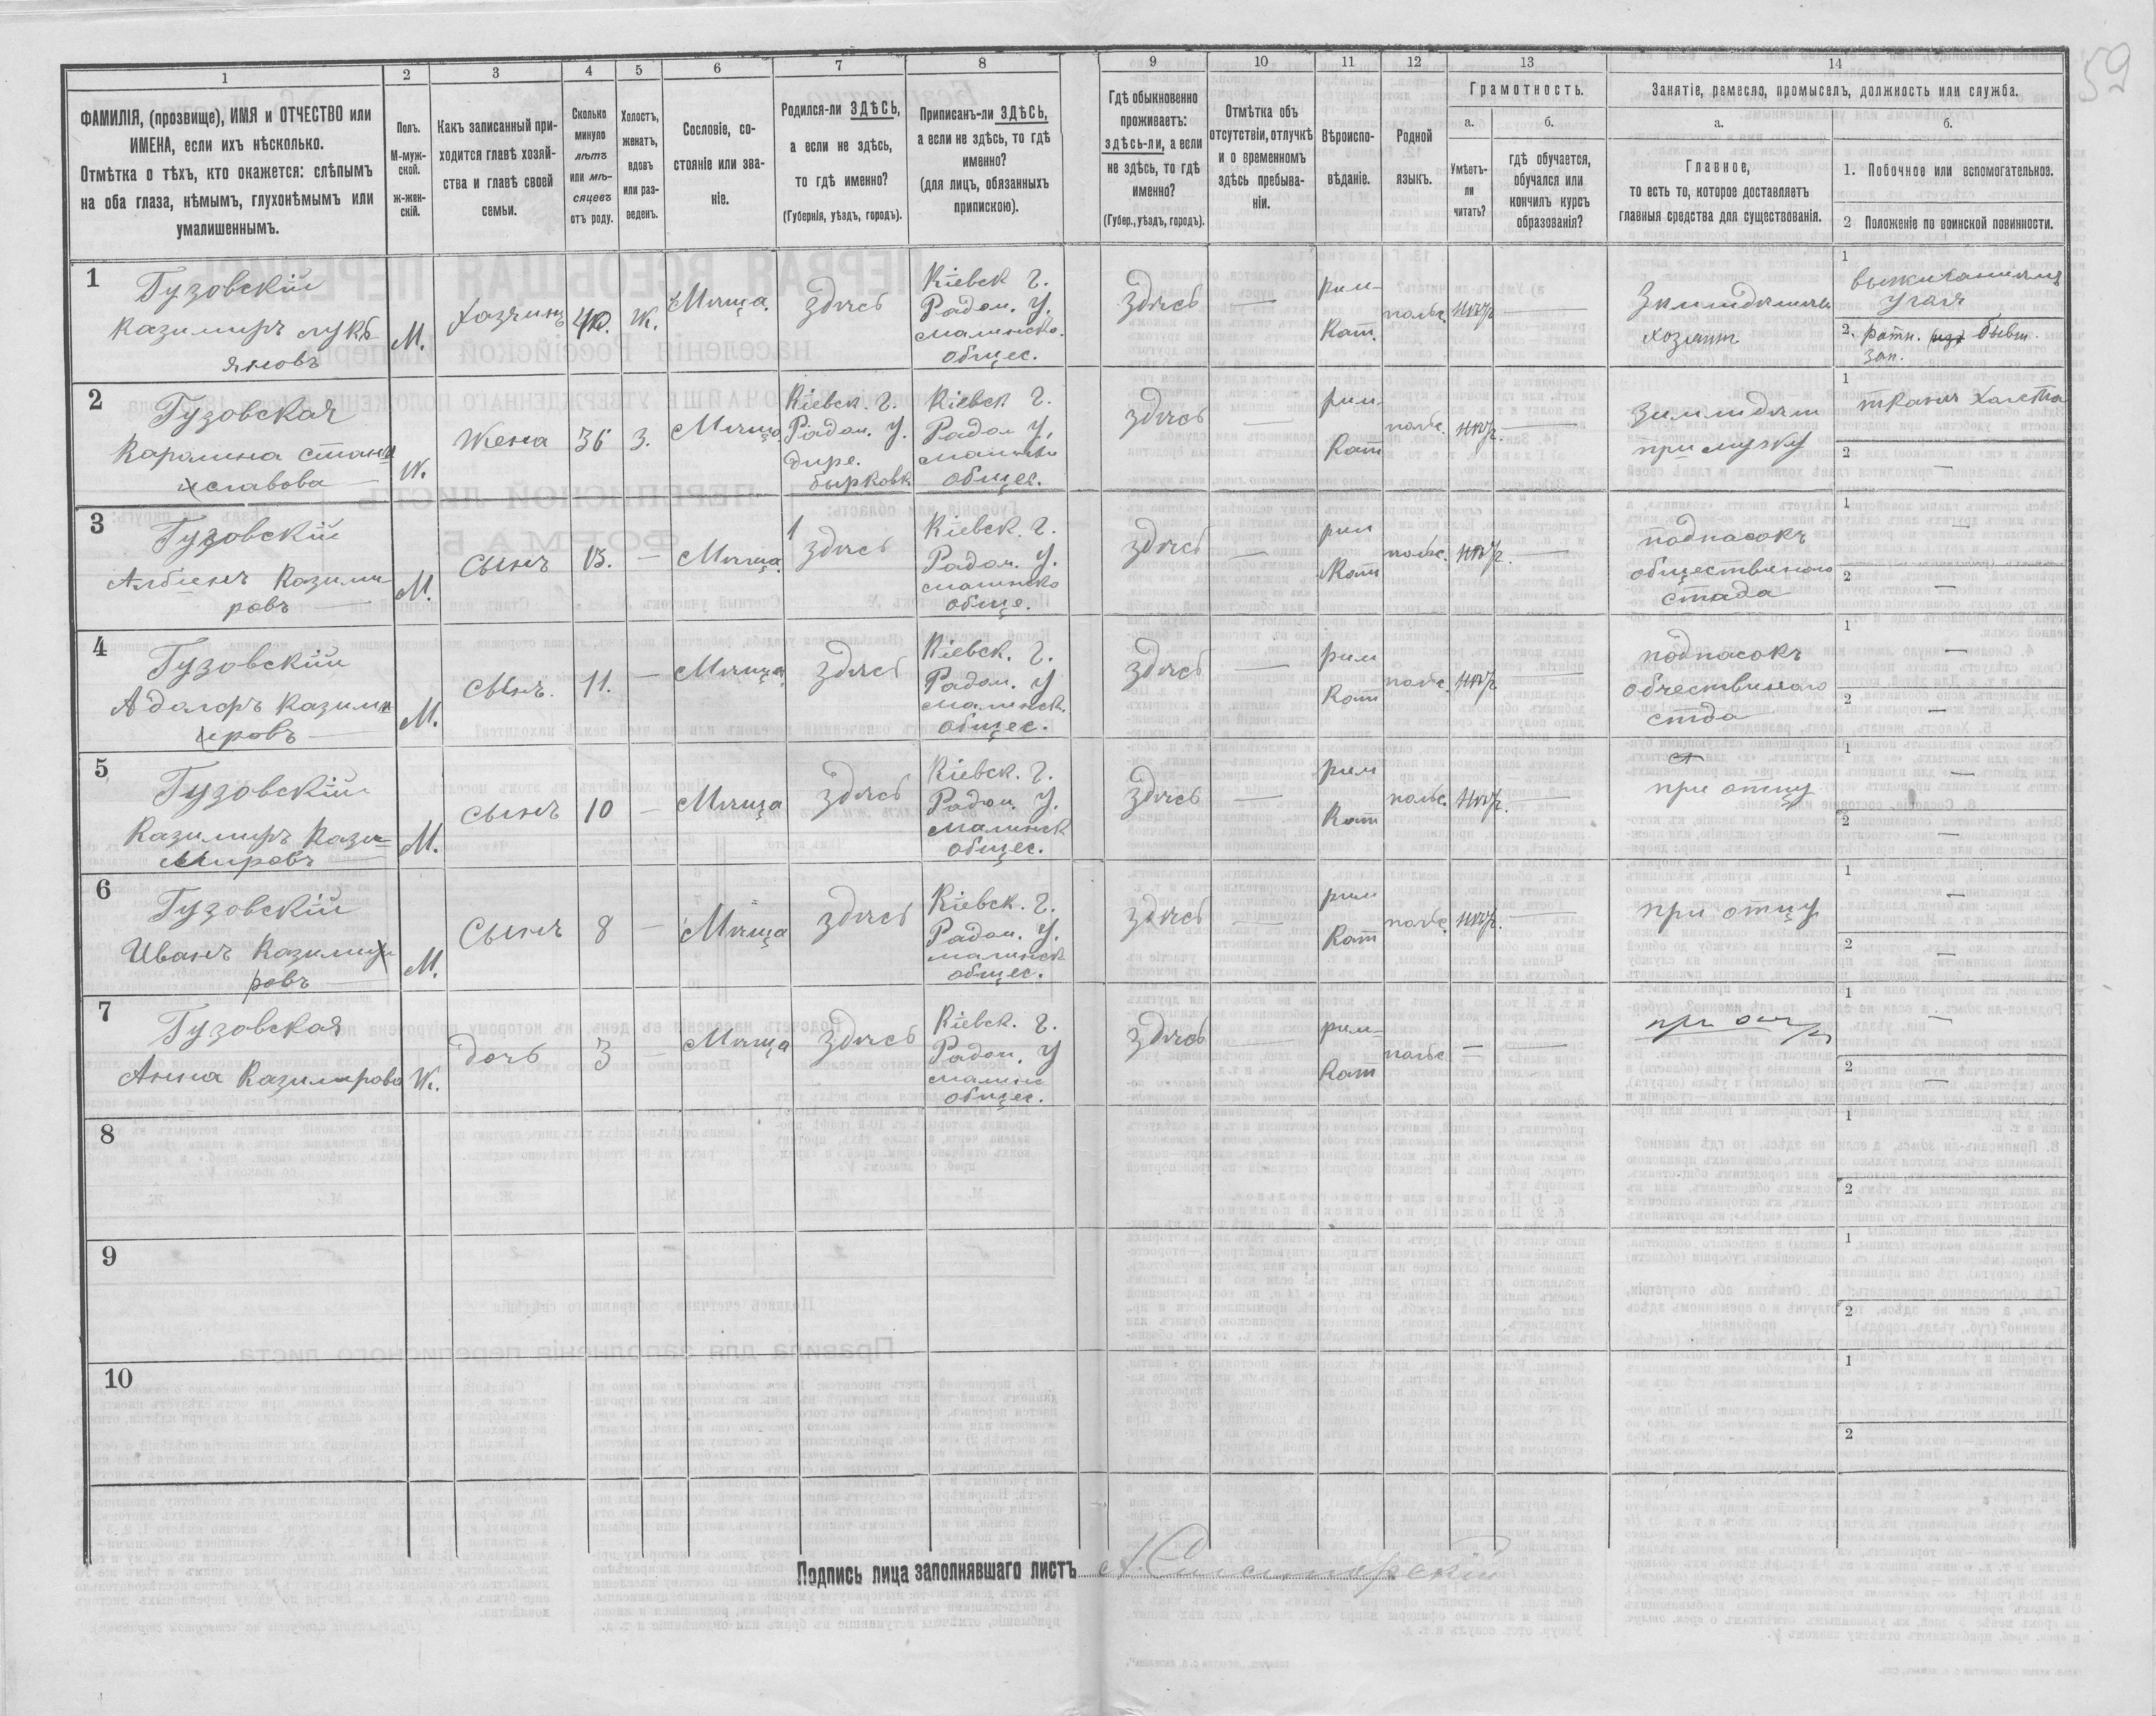 59
1
2
3
4
5
6
7
8
9
10
11
12
13
14
ФАМИЛІЯ, (прозвище), ИМЯ и ОТЧЕСТВО или
ИМЕНА, если ихъ нѣсколько.
Отмѣтка о тѣхъ, кто окажется: слѣпымъ
на оба глаза, нѣмымъ, глухонѣмымъ или
умалишеннымъ.
Полъ.
М-муж-
ской.
ж-жен-
скій.
Какъ записанный при-
ходится главѣ хозяй-
ства и главѣ своей
семьи.
Сколько
минуло
лѣтъ
или мѣ-
сяцевъ
отъ роду.
Холостъ,
женатъ,
вдовъ
или раз-
веденъ.
Сословіе, со-
стояніе или зва-
ніе.
Родился-ли ЗДѢСЬ,
а если не здѣсь,
то гдѣ именно?
(Губернія, уѣздъ, городъ).
Приписанъ-ли ЗДѢСЬ,
а если не здѣсь, то гдѣ
именно?
(для лицъ, обязанныхъ
припискою).
Гдѣ обыкновенно
проживаетъ:
здѣсь-ли, а если
не здѣсь, то гдѣ
именно?
(Губер., уѣздъ, городъ).
Отмѣтка объ
отсутствіи, отлучкѣ
и о временномъ
здѣсь пребыва-
ніи.
Вѣроиспо-
вѣданіе.
Родной
языкъ.
Грамотность.
а.
Умѣетъ-
ли
читать?
б.
гдѣ обучается,
обучался или
кончилъ курсъ
образованія?
Занятіе, ремесло, промыселъ, должность или служба.
а.
Главное,
то есть то, которое доставляетъ
главныя средства для существованія.
б.
1. Побочное или вспомогательное.
2 Положеніе по воинской повинности.
1
Гузовскій
Казимиръ Лукь
яновъ
М.
хозяинъ
Ж.
Мѣща.
здѣсь
Кіевск Г.
Радом. У.
малинско.
общес.
здѣсь
—
рим-
Кат.
польс.
нѣтъ
—
хозяинъ
1
угля
2. ратн. бывш.
зап.
2
Гузовская
Каролина стани
славова
Ж.
Жена
36
З.
Мѣща
Кіевск. Г.
Радом. У.
дире.
бырковк
Кіевск Г.
Радом У.
общес.
здѣсь
—
рим-
Кат
польс.
нѣтъ.
—
при мужу
1
ткачиха холста
2
—
3
Гузовскій
Албинъ Казими
ровъ —
М.
сынъ
13.
—
Мѣща
здѣсь
Кіевск. Г.
Радом. У.
малинско
обще.
здѣсь
—
рим
Кат
польс.
нѣтъ.
—
подпасокъ
общественаго
стада
1
—
2
—
4
Гузовскій
Адольфъ Казими
ровъ —
М.
сынъ.
11.
—
Мѣща
здѣсь
Кіевск. Г.
Радом. У
малинск.
общес.
здѣсь
—
рим
Кат
польс.
нѣтъ.
—
подпасокъ
обчественаго
стда
1
—
2
—
5
Гузовскій
Казимиръ Кази-
мировъ —
М.
сынъ
10
—
Мѣща
здѣсь
Кіевск. Г.
Радом. У.
малинск
общес.
здѣсь
—
рим
Кат
польс.
нѣтъ.
—
при отцу
1
—
2
—
6
Гузовскій
Иванъ Казими
ровъ —
М.
Сынъ
8
—
Мѣща
здѣсь
Кіевск. Г.
Радом. У.
малинск
общес.
здѣсь
—
рим
Кат
польс.
нѣтъ.
—
при отцу
1
—
2
—
7
Гузовская
Анна Казимирова
Ж.
дочь
3
—
Мѣща
здѣсь
Кіевск. Г.
Радом. У
малинс
общес.
здѣсь
—
рим-
Кат
польс
—
—
при отцу
1
—
2
—
8
1
2
9
1
2
10
1
2
Подпись лица заполнявшаго листъ